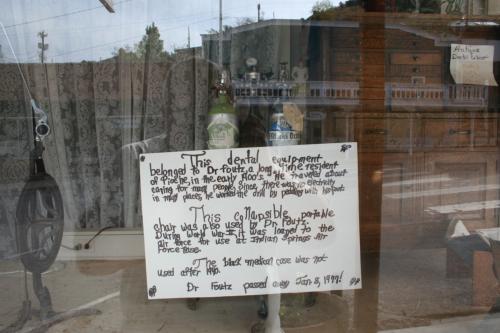 This dental equipment
belonged to Dr Foutz, a long time resident
of Pioche, in the early 1900's. He traveled about
caring for many people. Since there was no electricity
in most places, he worked the drill by peddling with his foot.
This collapsible, portable
chair was also used by Dr Foutz.
During World War II it was loaned to the
air force for use at Indian Springs Air
Force Base.
The black medical case was not
used after 1910.
Dr Foutz passed away Jan 8, 1977!
Antique